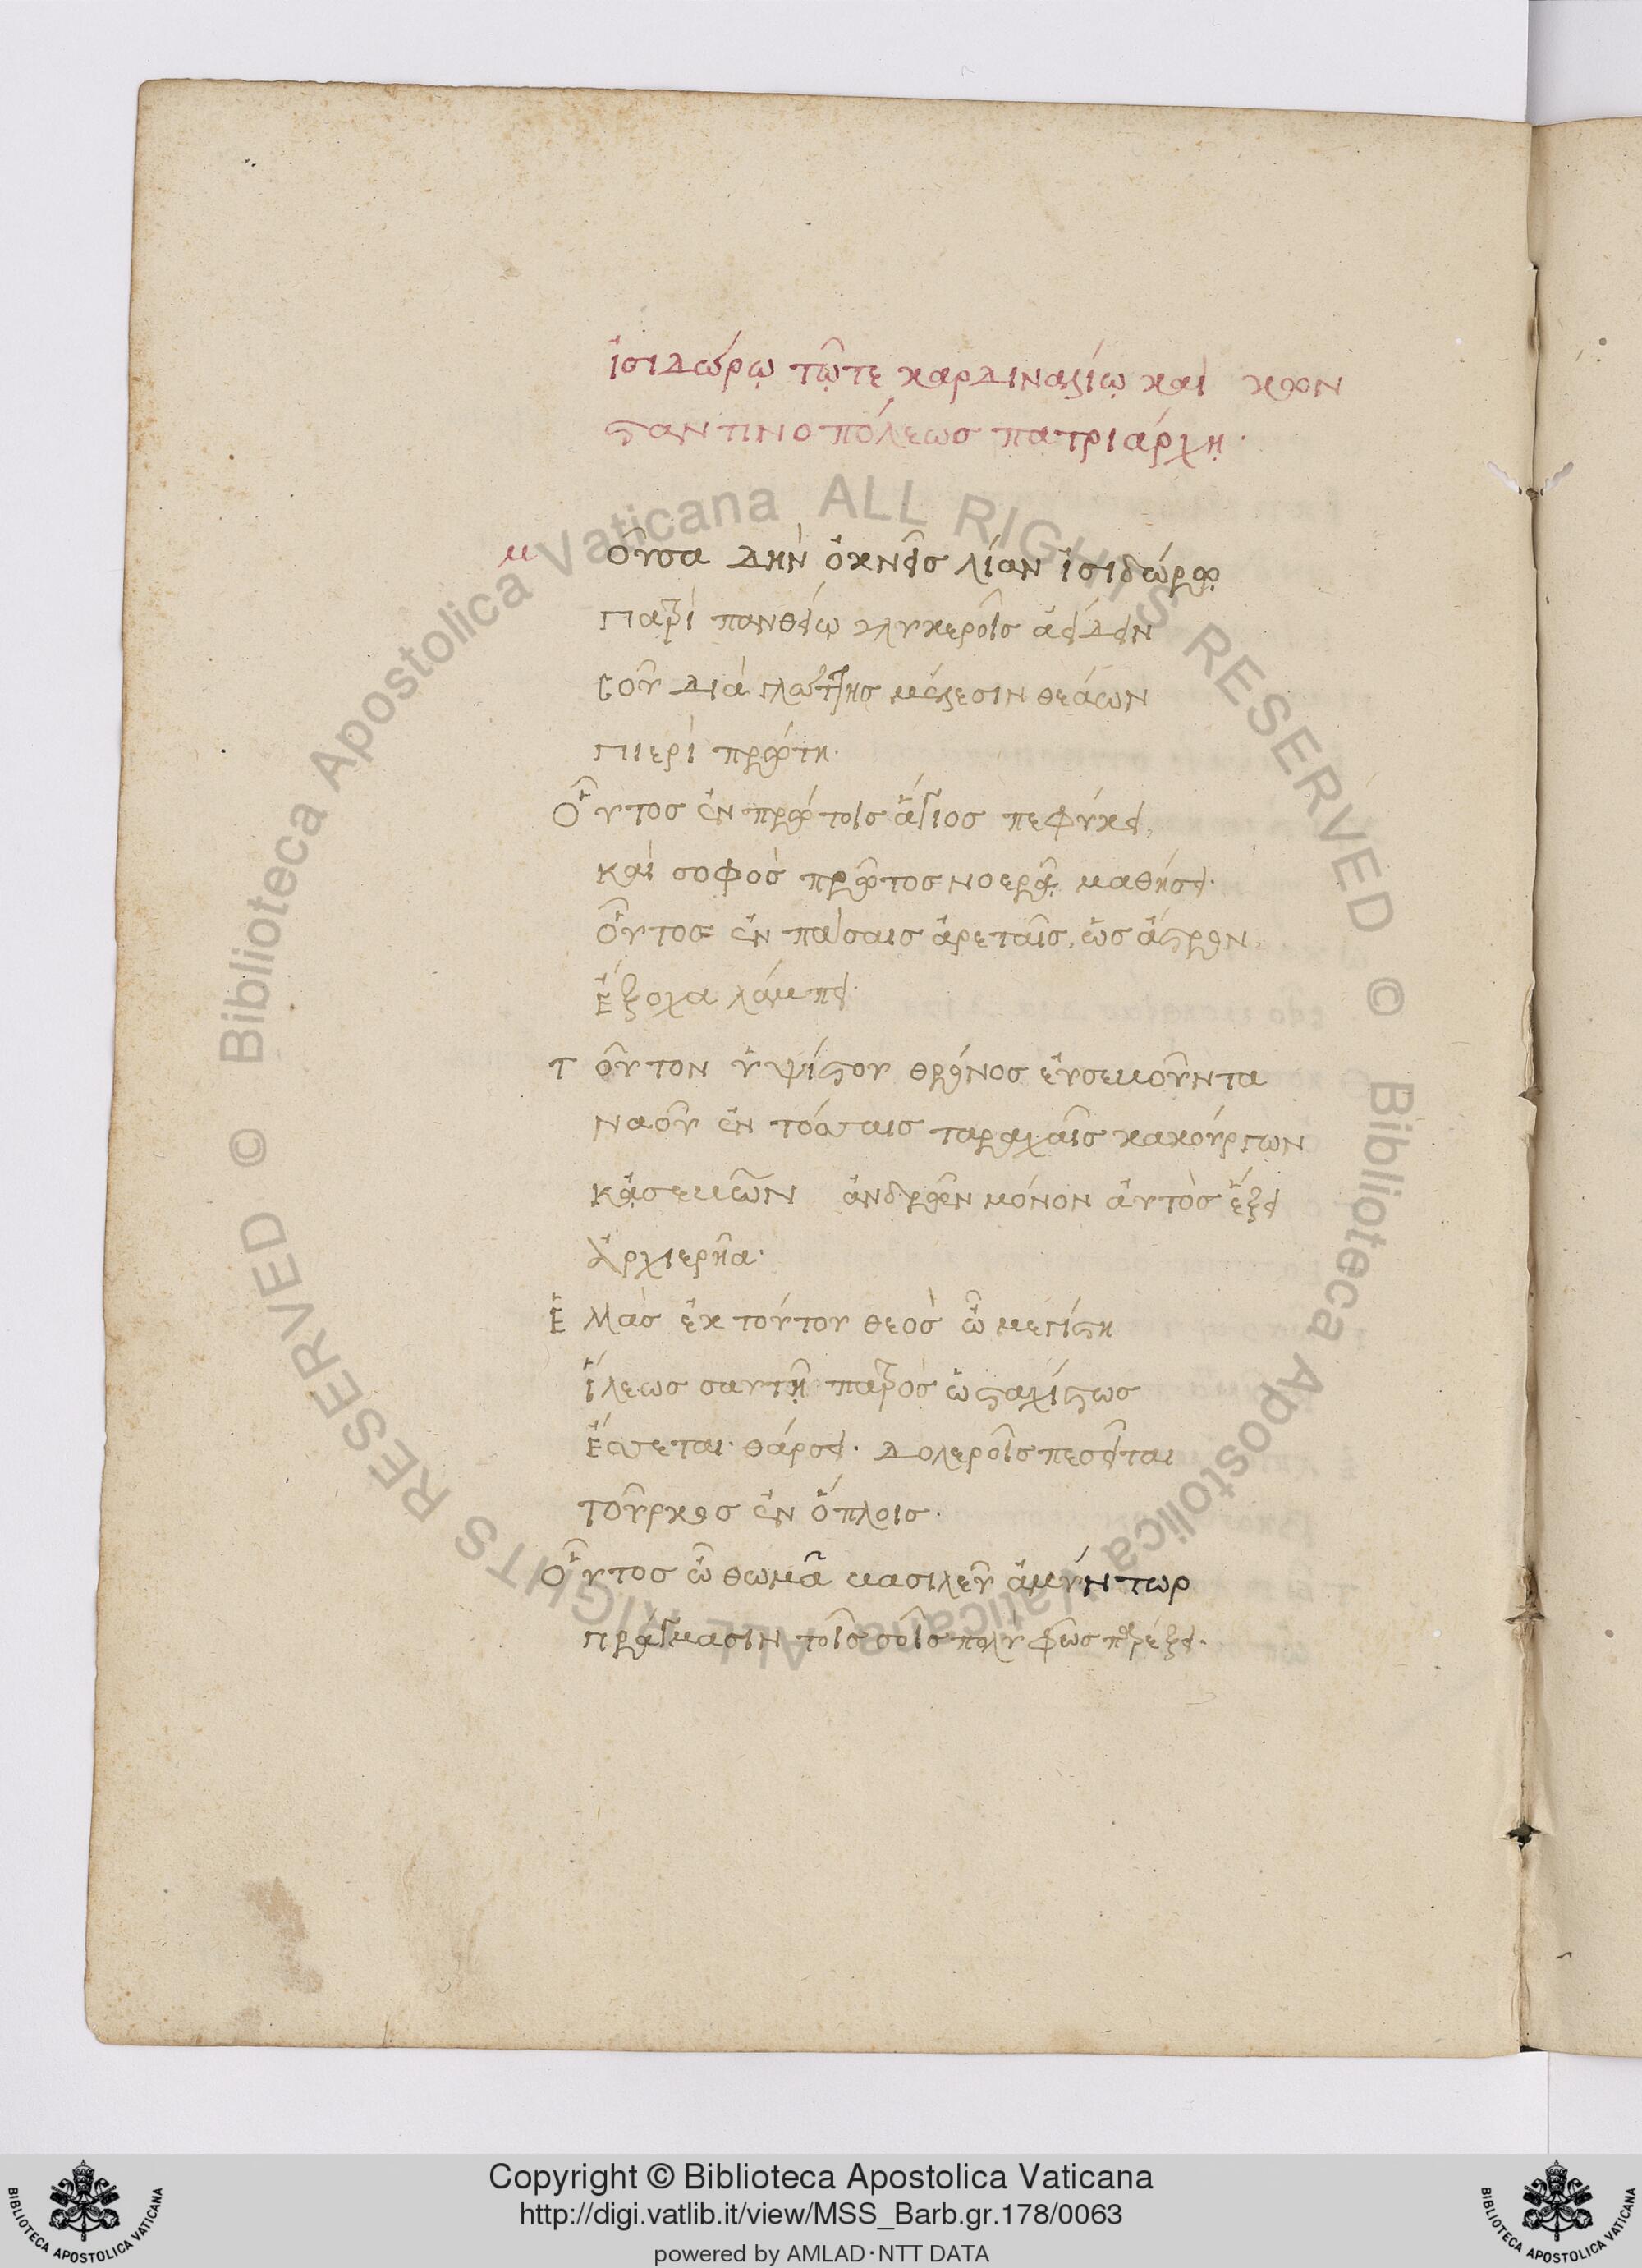 ἰσιδώρῳ τῷτε καρδιναλίῳ καὶ κων
σταντινοπόλεωσ πατριάρχῃ.
μ οῦσα δὴν ὀκνεῖς λίαν ἰσιδώρῳ
πατρὶ πανθείω γλυκεροῖς ἀείδειν
σοῦ διὰ γλώττης μέλεσιν θεάων
πιερὶ πρώτη.
Οὗτος ἐν πρώτοις ἅγιος πεφύκει,
καὶ σοφὸς πρῶτος νοερῷ μαθήσει.
οὗτος ἐν πάσαις ἀρεταῖς, ὡς ἄστρον,
ἔξοχα λάμπει.
τ οῦτον ὑψίστου θρόνος εὐσεβοῦντα
ναοῦ ἐν τόσαις ταραχαῖς κακούργων
κᾀσεβῶν ἀνδρῶν μόνον αὐτὸς ἕξει
ἀρχιερῆα.
ἐ μὰς ἐκ τούτου θεὸς ὦ μεγίστη
ἵλεως σαυτῇ πατρὸς ὡς ταχίστως
ἔσσεται. θάρσει. δολεροῖς πεσεῖται
τοῦρκος ἐν ὅπλοις.
Οὗτος ὦ θωμᾶ βασιλεῦ ἀμύντωρ
πράγμασιν τοῖς σοῖς πολὺ φῶς παρέξει.
Copyright © Biblioteca Apostolica Vaticana
http://digi.vatlib.it/view/MSS_Barb.gr.178/0063
powered by AMLAD·NTT DATA
BIBLIOTECA APOSTOLICA VATICANA
BIBLIOTECA APOSTOLICA VATICANA
© Biblioteca Apostolica Vaticana ALL RIGHTS RESERVED © Biblioteca Apostolica Vaticana ALL RIGHTS RESERVED